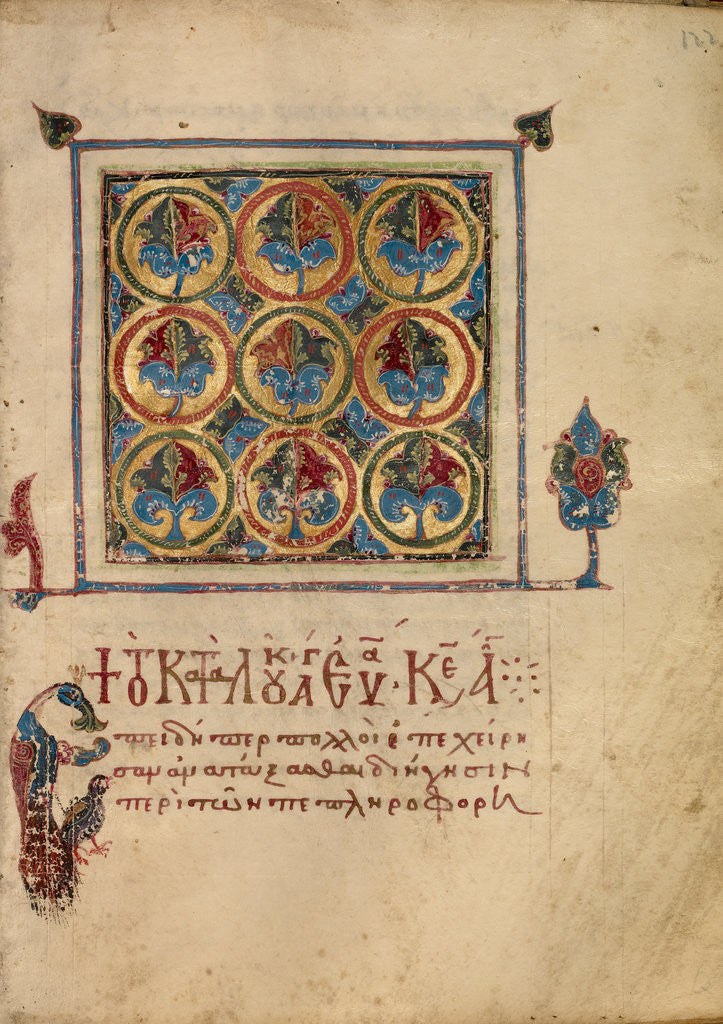 122
+ τὸ κατὰ λουκ· ἅγι εὐα· κε Α
Ἐπειδήπερ πολλοὶ ἐπεχείρη
σαν ἀνατάξασθαι διήγησιν
περὶ τῶν πεπληροφορη